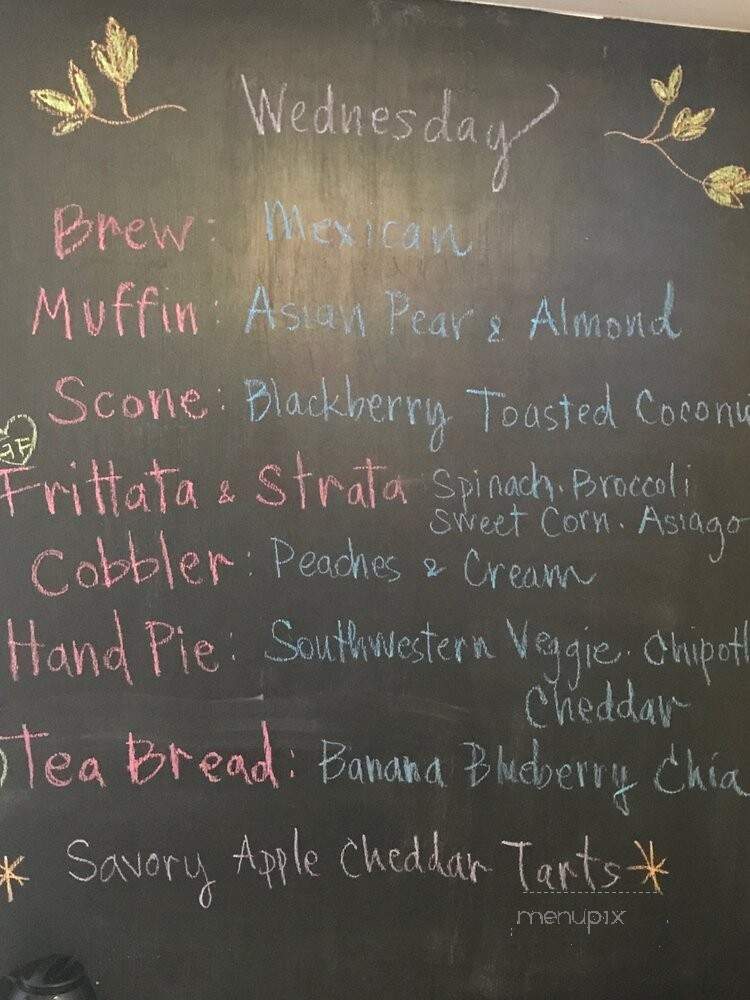 Wednesday
Brew: Mexican
Muffin: Asian Pear & Almond
Scone: Blackberry Toasted Coconu
GF
Frittata & Strata Spinach. Broccoli
Sweet Corn. Asiago
Cobbler: Peaches & Cream
Hand Pie: Southwestern Veggie. Chipotl
Cheddar
Tea Bread: Banana Blueberry Chia
* Savory Apple Cheddar Tarts *
menupix